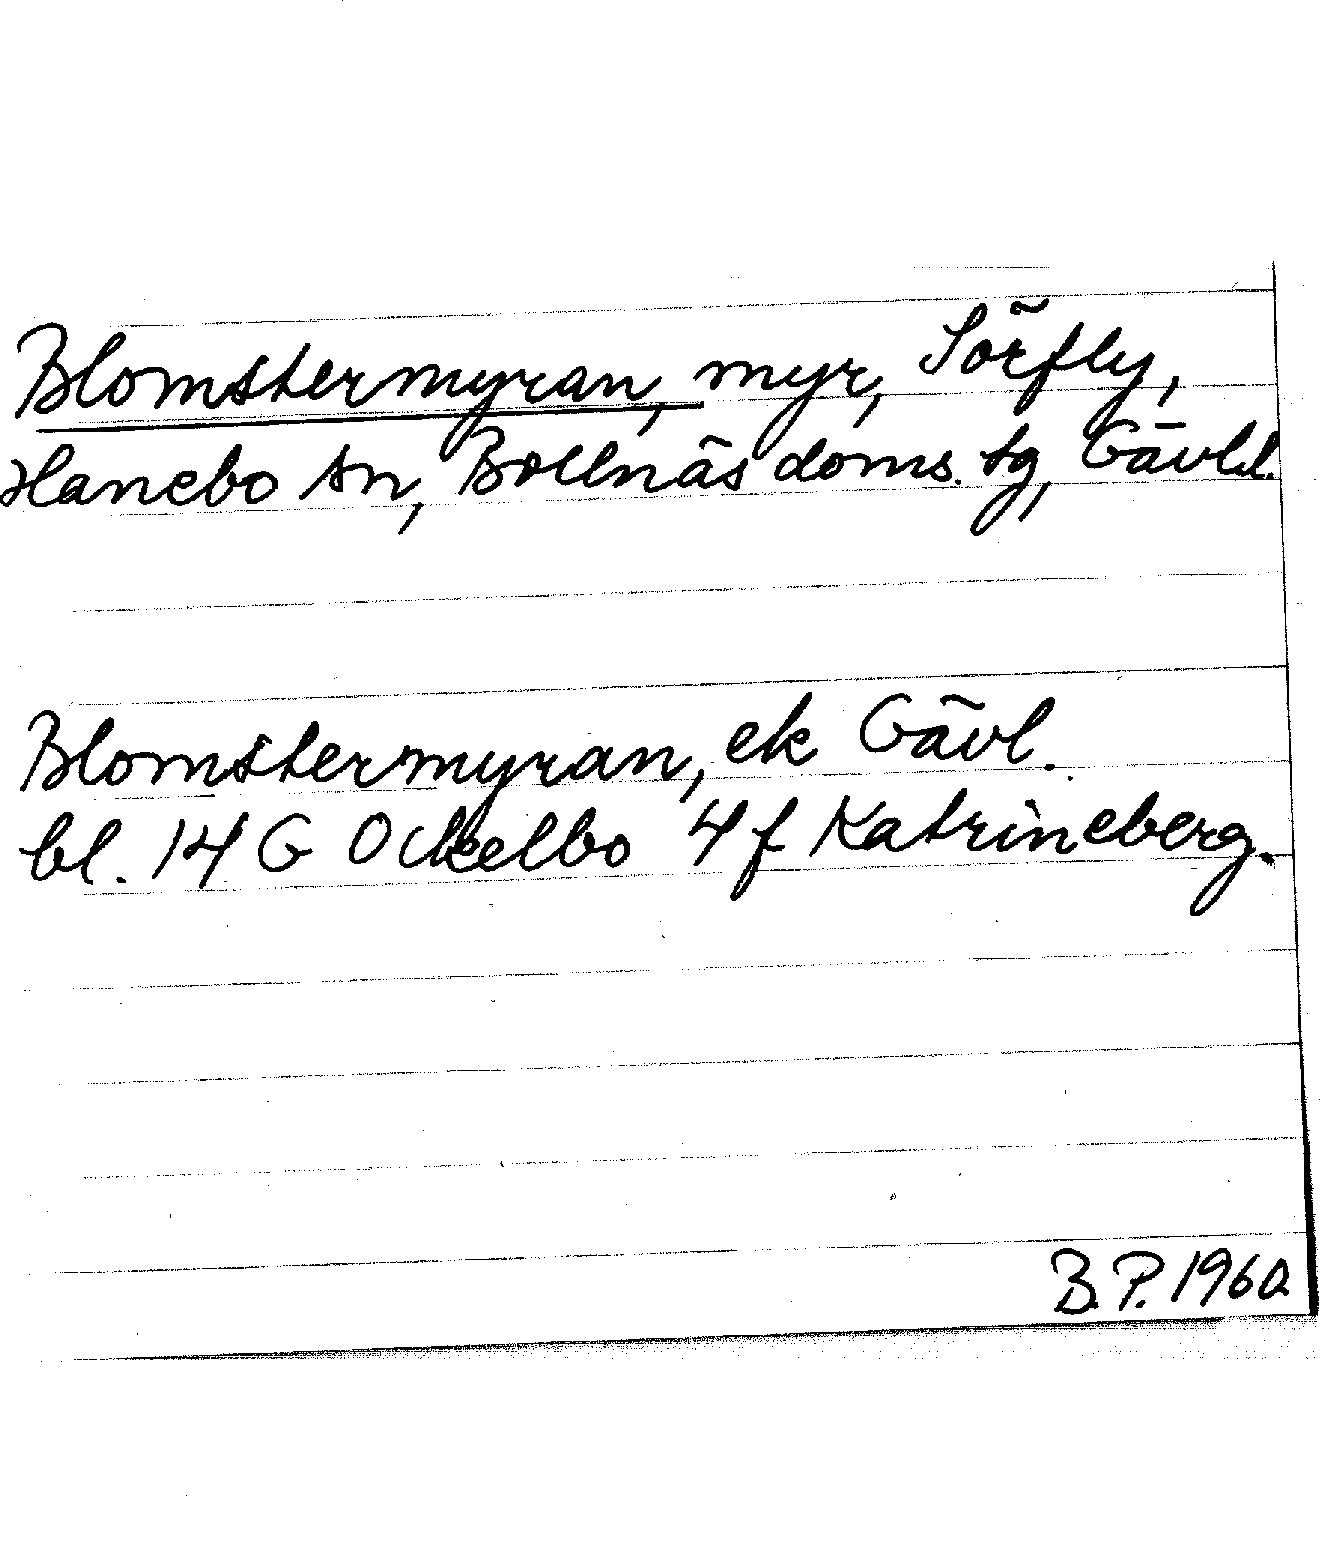 Blomstermyran, myr, Sörfly,
Hanebo sn, Bollnäs doms. tg, Gävl.l.
Blomstermyran, ek Gävl.
bl. 14 G Ockelbo 4 f Katrineberg.
B.P. 1960